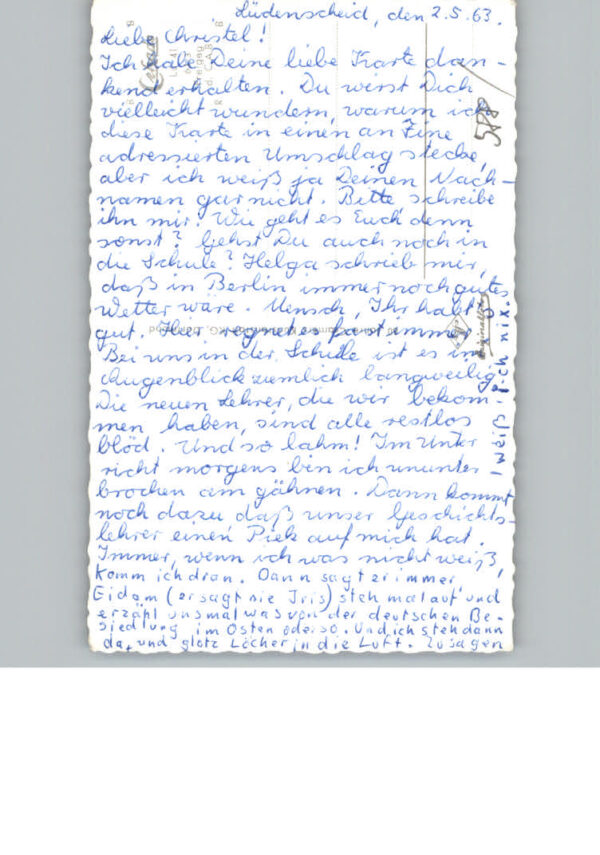 Lüdenscheid, den 2.5.63.
Liebe Christel!
Ich habe Deine liebe Karte dan-
kend erhalten. Du wirst Dich
vielleicht wundern, warum ich
diese Karte in einen an Eine
adressierten Umschlag stecke,
aber ich weiß ja Deinen Nach-
namen gar nicht. Bitte schreibe
ihn mir! Wie geht es Euch denn
sonst? Gehst Du auch noch in
die Schule? Helga schrieb mir,
daß in Berlin immer noch gutes
Wetter wäre. Mensch, Ihr habt's
gut. Hier regnet's fast immer.
Bei uns in der Schule ist es im
Augenblick ziemlich langweilig.
Die neuen Lehrer, die wir bekom-
men haben, sind alle restlos
blöd. Und so lahm! Im Unter-
richt morgens bin ich ununter-
brochen am gähnen. Dann kommt
noch dazu daß unser Geschichts-
lehrer einen Piek auf mich hat.
Immer, wenn ich was nicht weiß,
komm ich dran. Dann sagt er immer
Eidam (er sagt nie Iris) steh mal auf und
erzähl uns mal was von der deutschen Be-
siedlung im Osten oder so. Und ich steh dann
da, und glotz Löcher in die Luft. Zu sagen
weiß ich nix.
588